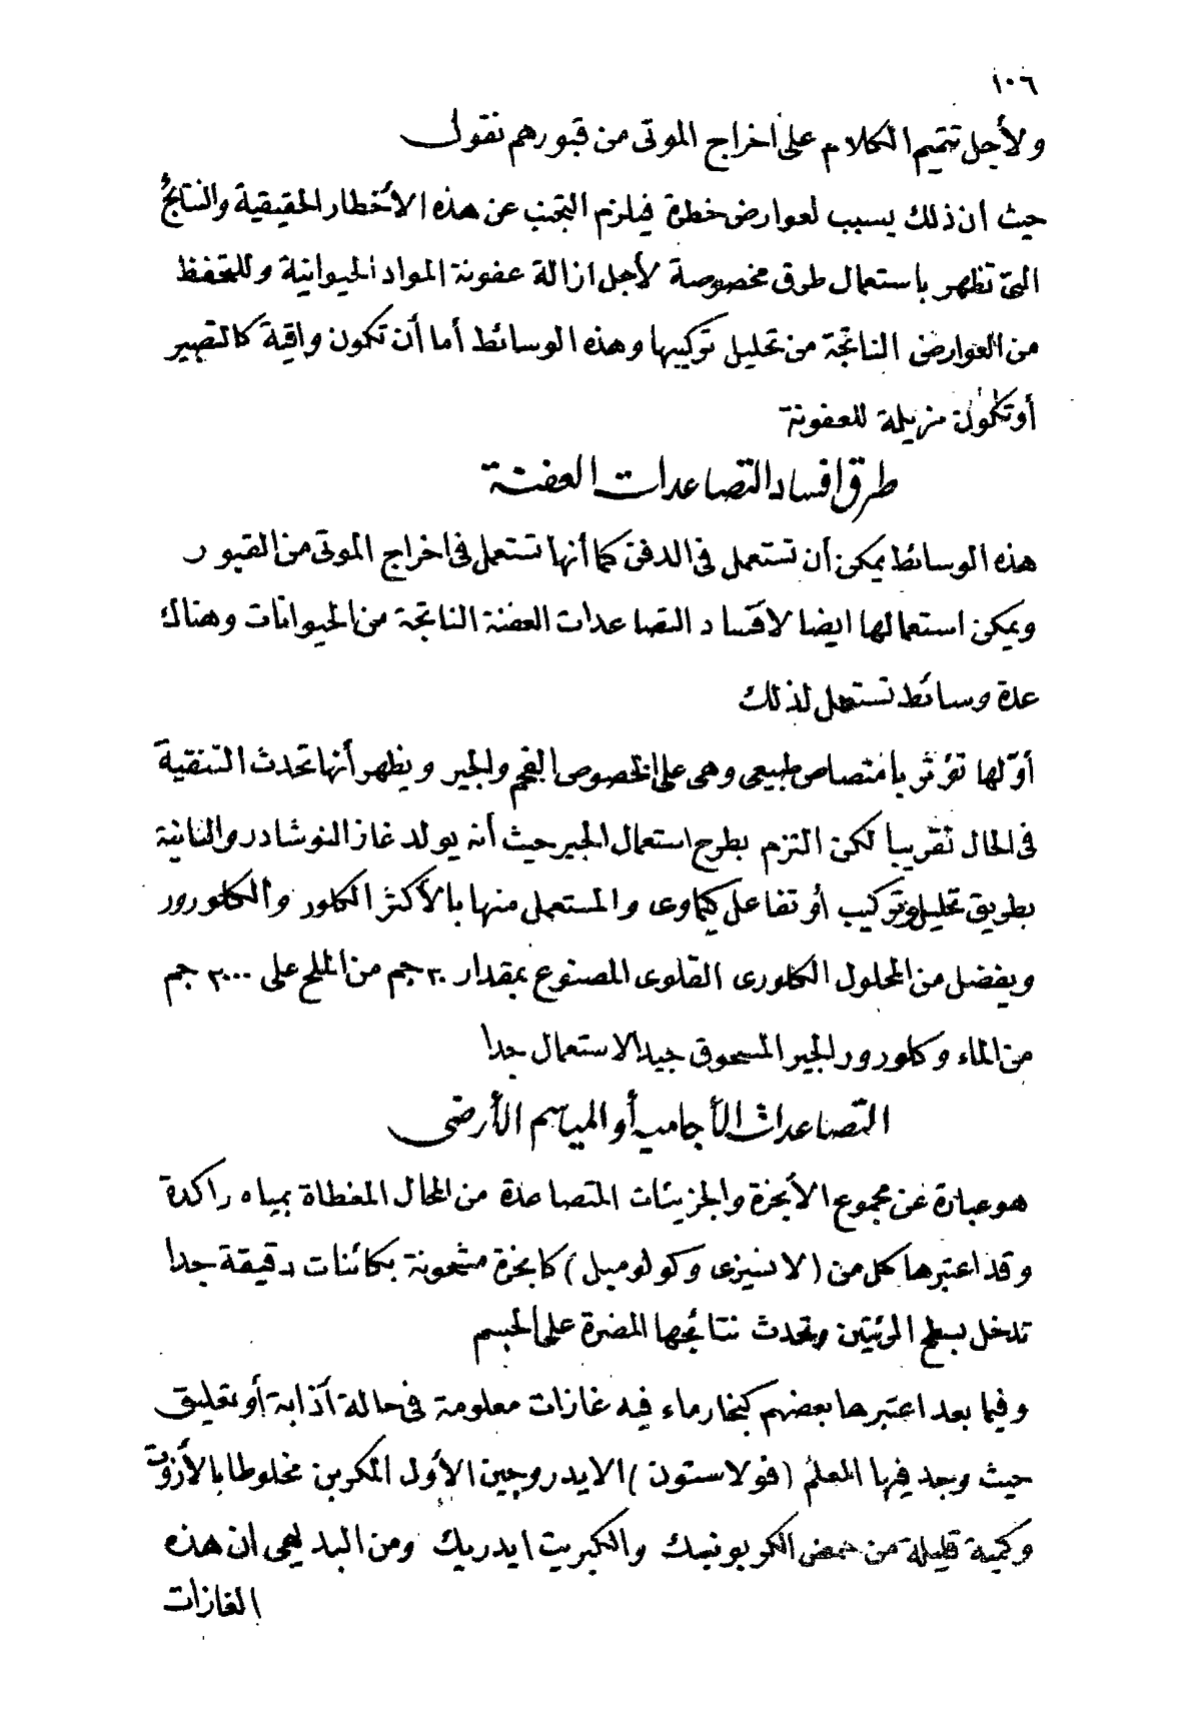 ١٠٦
ولأجل تتميم الكلام على اخراج الموتى من قبورهم نقول
حيث ان ذلك يسبب لعوارض خطرة فيلزم التجنب عن هذه الأخطار الحقيقية والنتائج
التى تظهر باستعمال طرق مخصوصة لأجل ازالة عفونة المواد الحيوانية وللتحفظ
من العوارض الناتجة من تحليل تركيبها وهذه الوسائط أما أن تكون واقية كالتصبير
أو تكون مزيلة للعفونة
طرق افساد التصاعدات العفنة
هذه الوسائط يمكن أن تستعمل فى الدفن كما أنها تستعمل فى اخراج الموتى من القبور
ويمكن استعمالها ايضا لافساد التصاعدات العفنة الناتجة من الحيوانات وهناك
عدة وسائط تستعمل لذلك
أوّلها تؤثر بامتصاص طبيعى وهى على الخصوص الفحم والجير ويظهر أنها تحدث التنقية
فى الحال تقريبا لكن التزم بطرح استعمال الجير حيث أنه يولد غاز النوشادر والثانية
بطريق تحليل وتركيب أو تفاعل كيماوى والمستعمل منها بالأكثر الكلور والكلورور
ويفضل من المحلول الكلورى القلوى المصنوع بمقدار ٣٠ جم من الملح على ٣٠٠٠ جم
من الماء وكلورور الجير المسحوق جيد الاستعمال جدا
التصاعدات الأجامية أو المياسم الأرضى
هو عبارة عن مجموع الأبخرة والجزيئات المتصاعدة من المحال المغطاة بمياه راكدة
وقد اعتبرها كل من (لانسيزى وكولومبل) كابخرة مشحونة بكائنات دقيقة جدا
تدخل بسطح الرئيتين وتحدث نتائجها المضرة على الجسم
وفيما بعد اعتبرها بعضهم كبخار ماء فيه غازات معلومة فى حالة أذابة أو تعليق
حيث وجد فيها المعلم (فولاستون) الايدروجين الأول المكربن مخلوطا بالأزوت
وكمية قليلة من حمض الكربونيك والكبريت ايدريك ومن البديهى ان هذه
الغازات